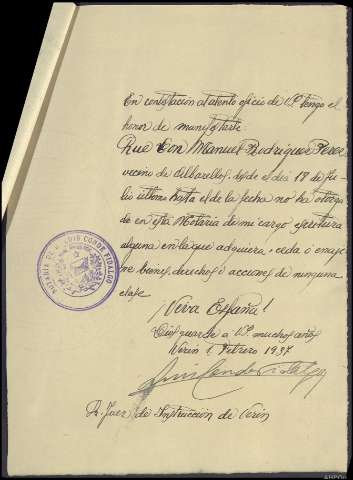 En contestación al atento oficio de Vª tengo el
honor de manifestarle
Que Don Manuel Rodriguez Perez
vecino de Vilbarellos, desde el dia 18 de Ju-
lio último hasta el de la fecha no ha otorga-
do en esta Notaria de mi cargo escritura
alguna en la que adquiera, ceda ó enaje-
ne bienes, derechos ó acciones de ninguna
clase
¡Viva España!
Dios guarde a Vª muchos años
Verin 1 Febrero 1937
Luis Conde Fidalgo
Sr. Juez de Instrucción de Verin
NOTARIA DE D. LUIS CONDE FIDALGO